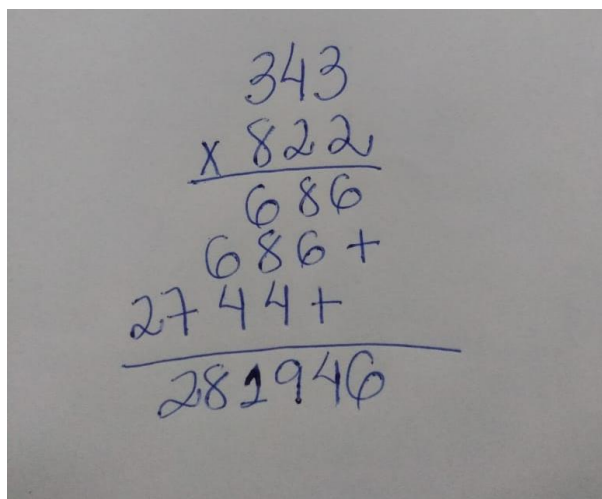 343
x 822
686
686+
2744+
281946